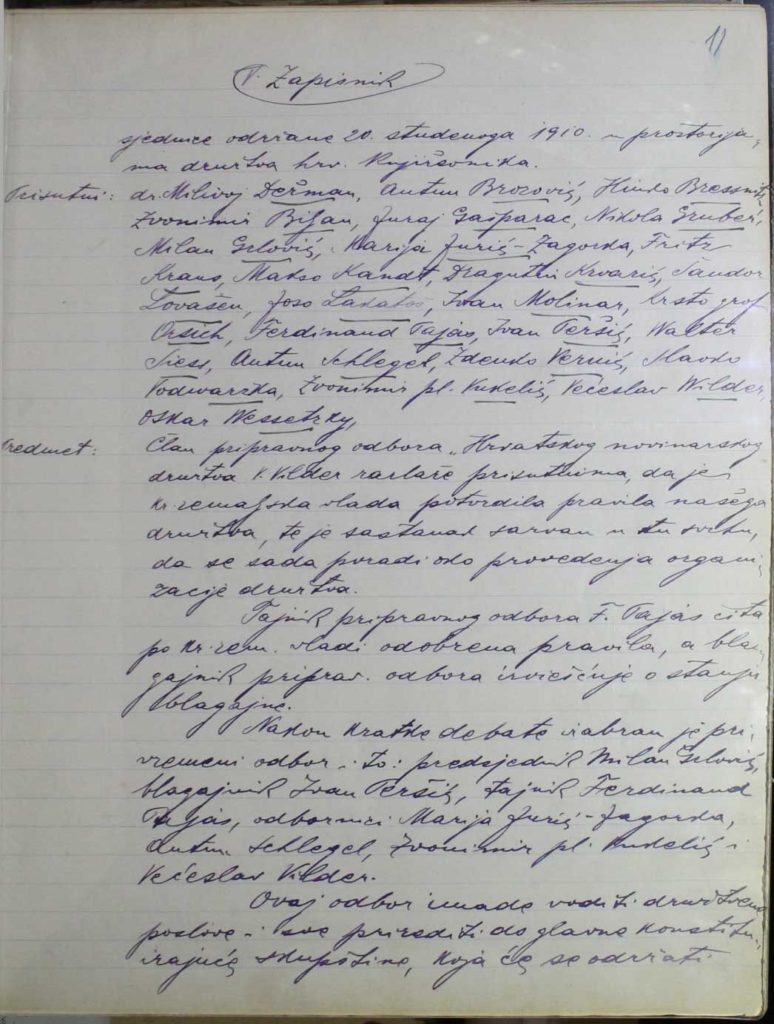 11
I. Zapisnik
sjednice održane 20. studenoga 1910. u prostorija-
ma društva hrv. književnika.
Prisutni: dr. Milivoj Dežman, Antun Brozović, Hinko Bressnitz,
Zvonimir Bijan, Juraj Gašparac, Nikola Gruber,
Milan Grlović, Marija Jurić-Zagorka, Fritz
Kraus, Makso Kandt, Dragutin Krvarić, Šandor
Lovašen, Joso Lakatoš, Ivan Molinar, Krsto grof
Oršich, Ferdinand Pajas, Ivan Peršić, Walter
Siess, Antun Schlegel, Zdenko Vernić, Slavko
Vodwarzka, Zvonimir pl. Vukelić, Većeslav Wilder,
Oskar Wessetzky,
Predmet: Član pripravnog odbora „Hrvatskog novinarskog
društva V. Vilder razlaže prisutnima, da je
kr. zemaljska vlada potvrdila pravila našega
društva, te je sastanak sazvan u tu svrhu,
da se sada poradi oko provedenja organi-
zacije društva.
Tajnik pripravnog odbora F. Pajas čita
po kr. zem. vladi odobrena pravila, a bla-
gajnik priprav. odbora izvješćuje o stanju
blagajne.
Nakon kratke debate izabran je pri-
vremeni odbor i to: predsjednik Milan Grlović,
blagajnik Ivan Peršić, tajnik Ferdinand
Pajas, odbornici Marija Jurić-Zagorka,
Antun Schlegel, Zvonimir pl. Vukelić i
Većeslav Vilder.
Ovaj odbor imade voditi društvene
poslove i sve prirediti do glavne konstitu-
irajuće skupštine, koja će se održati